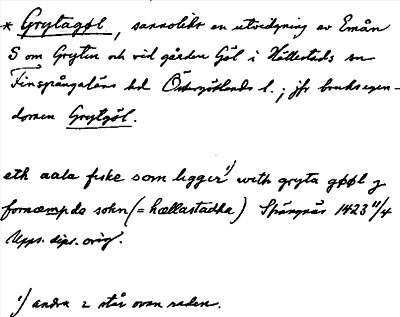 * Grytagøl, sannolikt en utvidgning av Emån
S om Grytin och vid gården Göl i Hällestads sn
Finspångaläns hd Östergötlands l. ; jfr bruksegen-
domen Grytgöl.
eth aala fiske som ligger ¹) with gryta gøøl j
fornæmpda sokn (= hællastadha) Spångnäs 1423 11/4
Upps. dipl. orig.
¹) andra 2 står ovan raden.